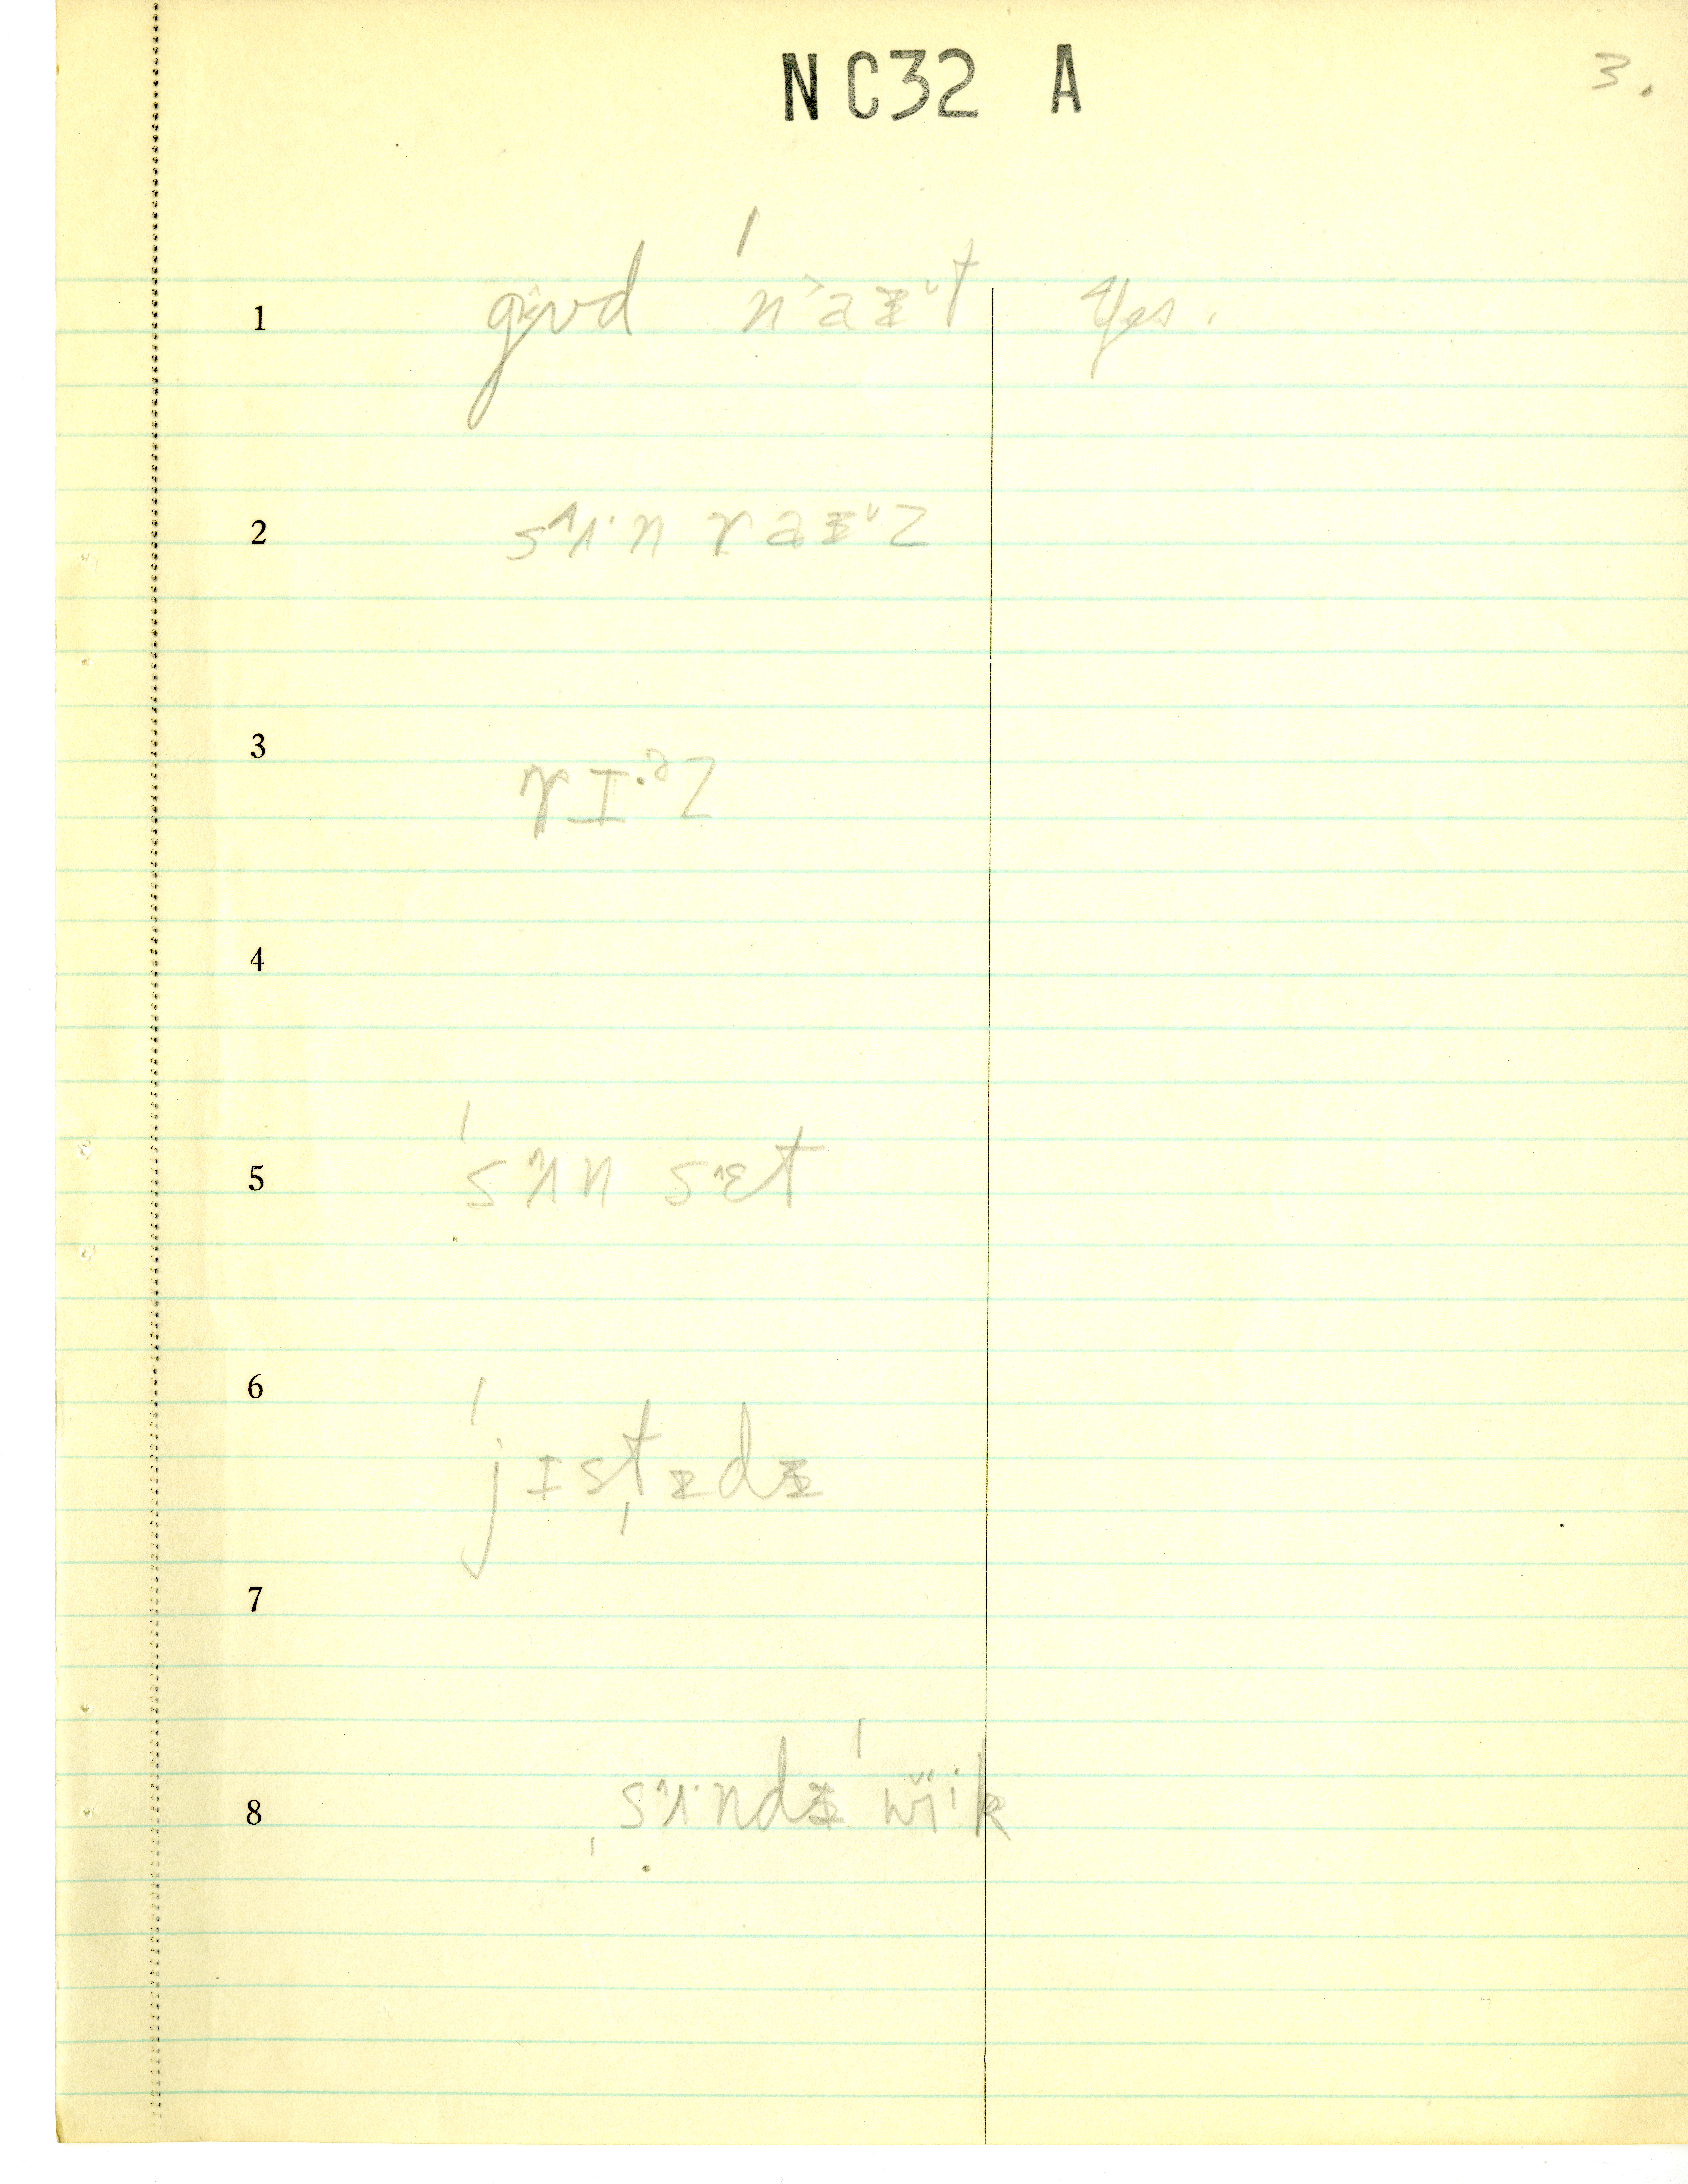 NC32 A
3.
1 gʊd ˈnaɨt Yes.
2 sʌnraɨz
3 rɪ.ᵊz
4
5 ˈsʌn sɛt
6 ˈjɪsˌtɨdɨ
7
8 ˌsʌndɨ ˈwik